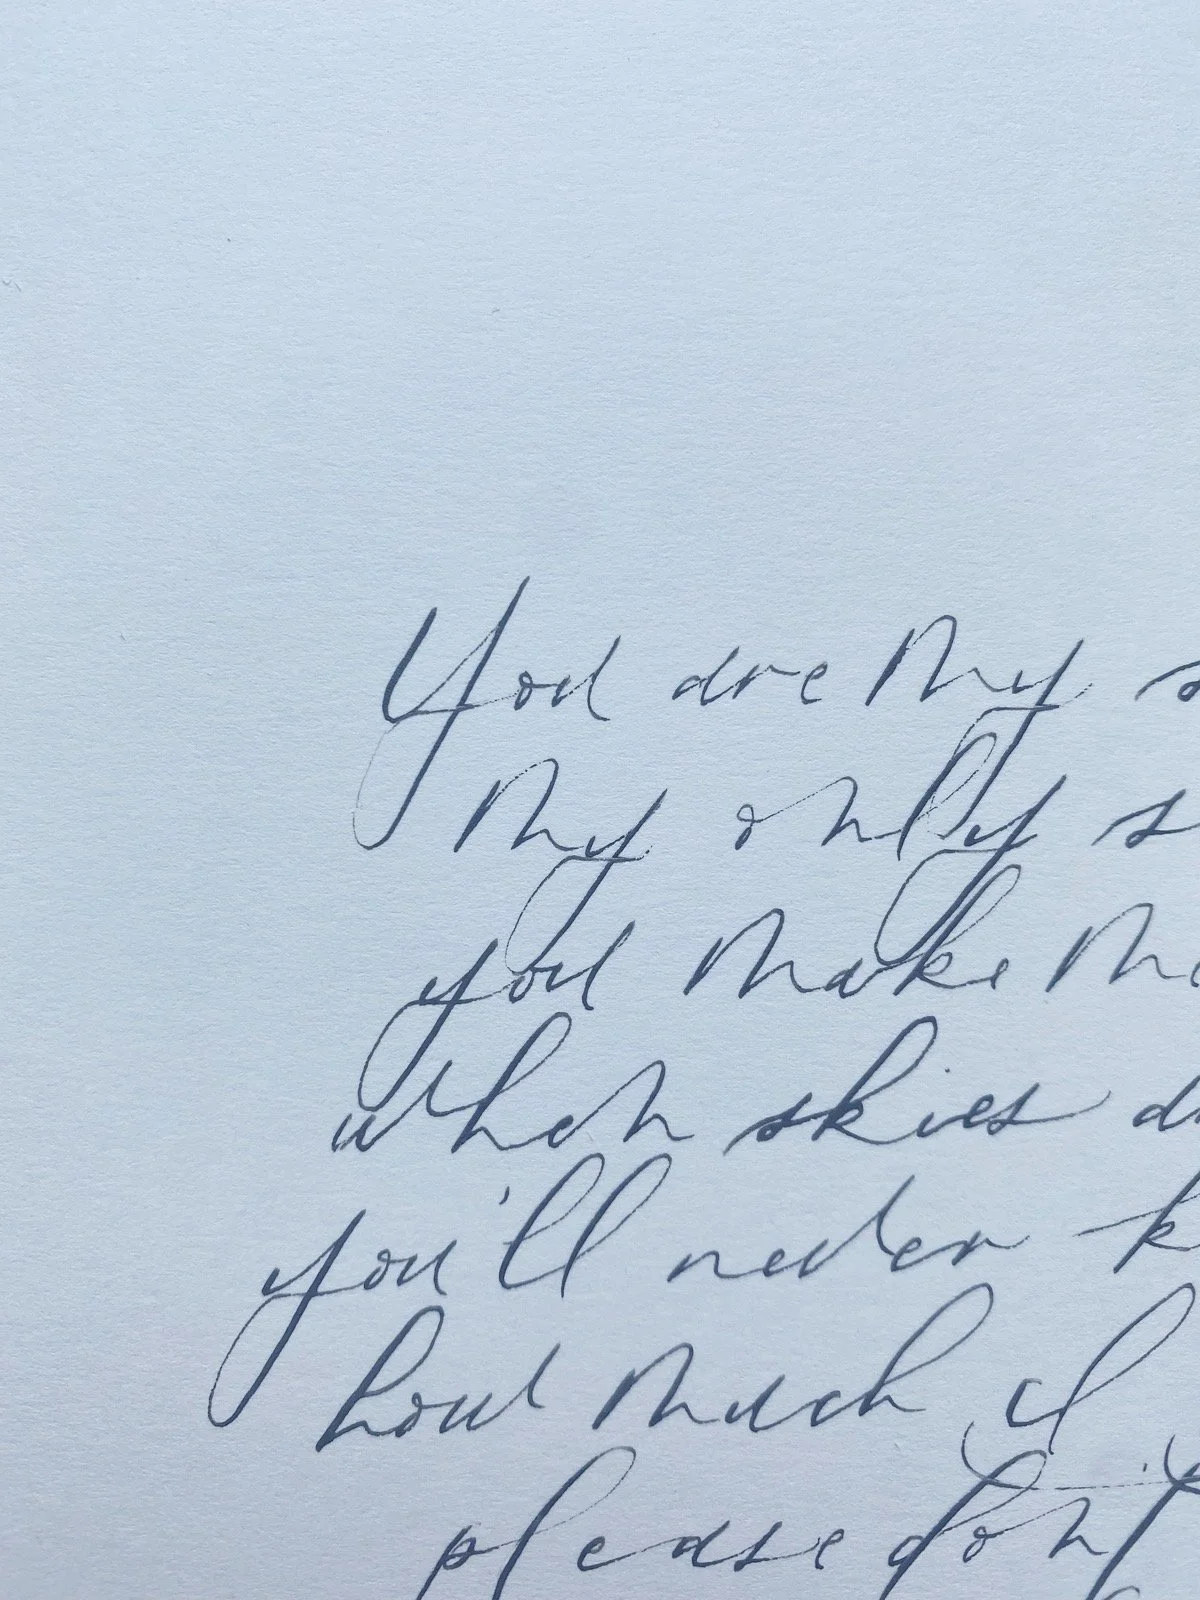 You are my s
My only s
you make me
when skies a
you'll never k
how much I
please don't